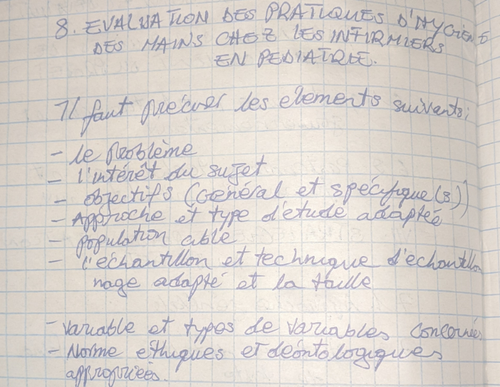 8. EVALUATION DES PRATIQUES D'HYGIENE
DES MAINS CHEZ LES INFIRMIERS
EN PEDIATRIE.
Il faut préciser les elements suivants;
- le Problème
- l'intérêt du sujet
- objectifs (Général et spécifique(s))
- Approche et type d'étude adaptée
- population cible
- l'échantillon et technique d'échantillon
nage adapté et la taille
- variable et types de variables concernés
- Norme éthiques et déontologiques
appropriées